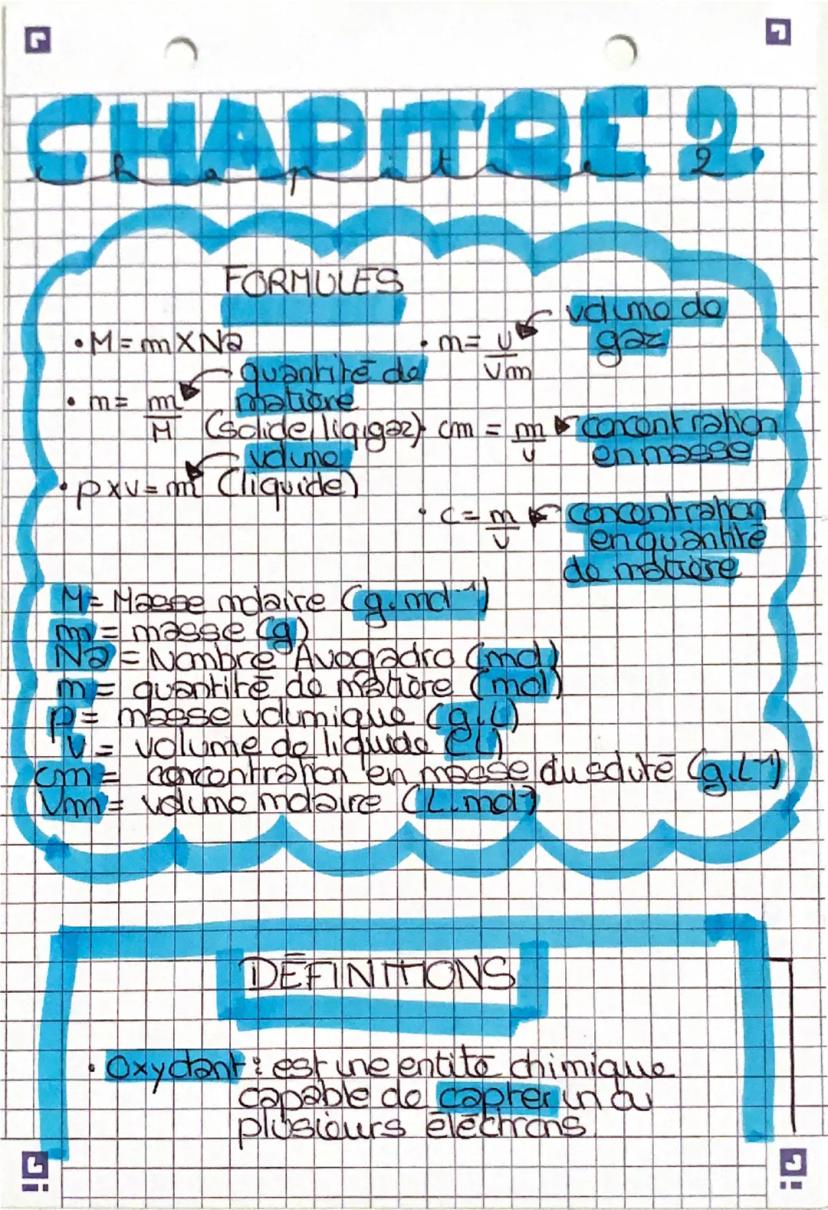 CHAPITRE 2
Chapitre 2
FORMULES
• M = m X Na
• m = v/Vm
volume de gaz
• m = m/M (solide, liq, gaz)
quantité de matière
• cm = m/v
concentration en masse
• ρ x v = m (liquide)
volume
• c = m/v
concentration en quantité de matière
M = Masse molaire (g.mol⁻¹)
m = masse (g)
Na = Nombre Avogadro (mol)
m = quantité de matière (mol)
ρ = masse volumique (g.L)
v = volume de liquide (L)
cm = concentration en masse du soluté (g.L⁻¹)
Vm = volume molaire (L.mol⁻¹)
DÉFINITIONS
• Oxydant : est une entité chimique
capable de capter un ou
plusieurs éléctrons